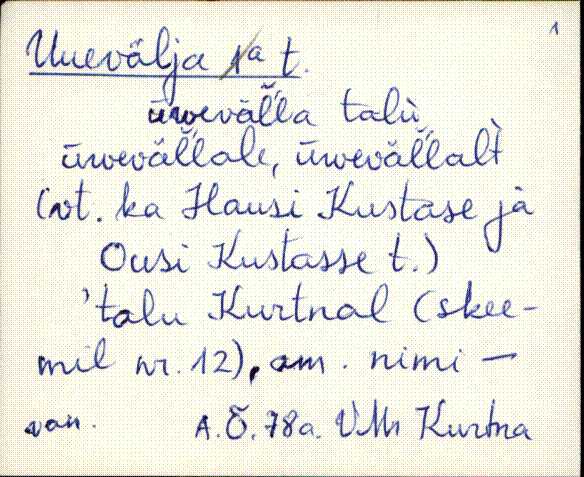 1
Uuevälja 1a t.
üwevälla talu
üwevällale, üwevällalt
(vt. ka Hausi Kustase ja
Ousi Kustasse t.)
'talu Kurtnal (skee-
mil nr. 12), am. nimi —
van. A.Õ. 78a. VMr Kurtna